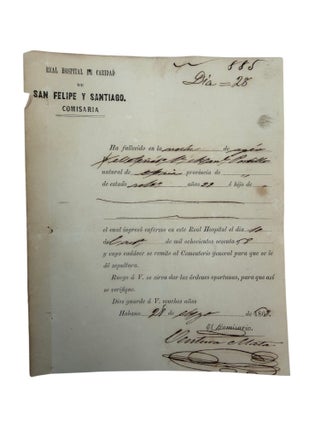 885
Dia = 28
REAL HOSPITAL DE CARIDAD
DE
SAN FELIPE Y SANTIAGO.
COMISARIA
Ha fallecido en la noche de
natural de provincia de "
de estado años 22 é hijo de
el cual ingresó enfermo en este Real Hospital el dia
de mil ochocientos sesenta
y cuyo cadáver se remite al Cementerio general para que se le
dé sepultura.
Ruego á V. se sirva dar las órdenes oportunas, para que así
se verifique.
Dios guarde á V. muchos años
Habana 28 de de 186
El Comisario,
Ventura Mata